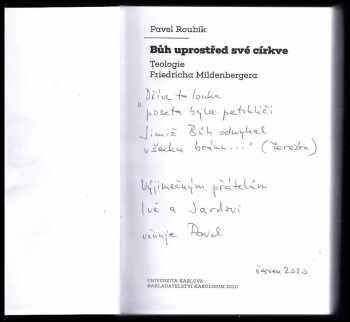 Pavel Roubík
Bůh uprostřed své církve
Teologie
Friedricha Mildenbergera
"Dříve ta louka
poseta byla petrklíči
jimiž Bůh odmykal
všecku bránu..." (Terezka)
Výjimečným přátelům
Ivě a Jardovi
věnuje Pavel
červen 2020
UNIVERZITA KARLOVA
NAKLADATELSTVÍ KAROLINUM 2020